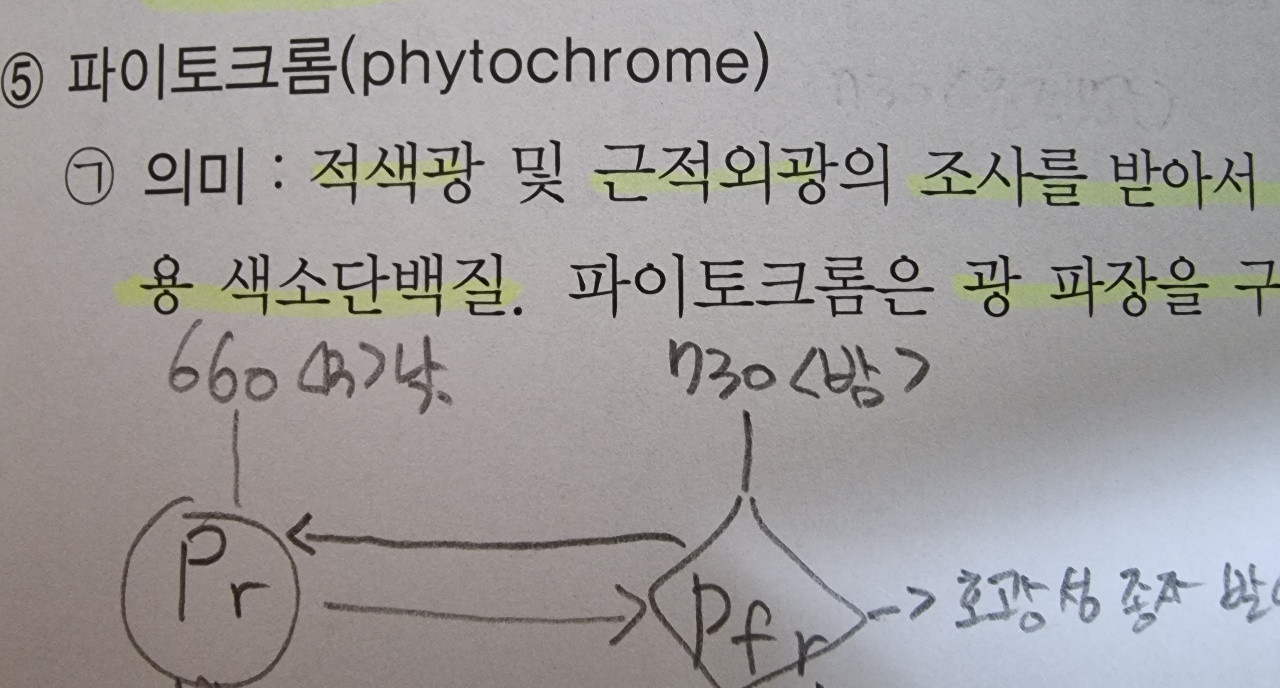 ⑤ 파이토크롬(phytochrome)
㉠ 의미 : 적색광 및 근적외광의 조사를 받아서
용 색소단백질. 파이토크롬은 광 파장을 구
660 <R>낮. 730 <밤>
Pr Pfr -> 호광성 종자